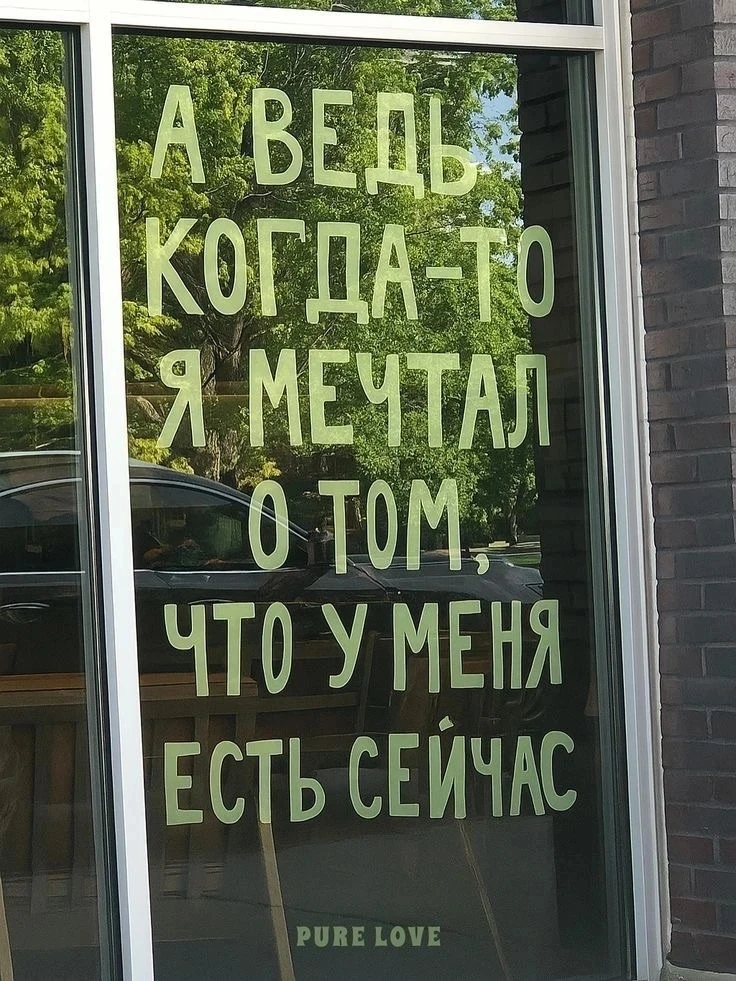 А ВЕДЬ
КОГДА-ТО
Я МЕЧТАЛ
О ТОМ,
ЧТО У МЕНЯ
ЕСТЬ СЕЙЧАС
PURE LOVE